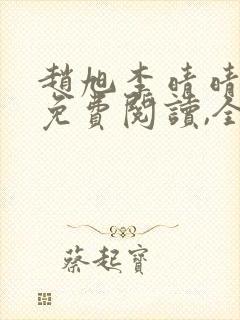 趙旭李晴晴
免費閱讀,全
蔡起寶